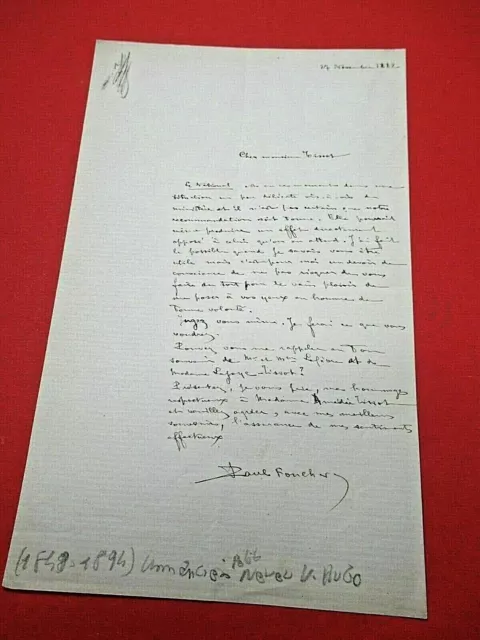 Cher monsieur Tissot
Le National est en ce moment dans une
situation un peu délicate vis-à-vis du
ministère et il n'est pas certain que notre
recommandation soit bonne. Elle pourrait
même produire un effet directement
opposé à celui qu'on en attend. J'ai fait
le possible quand je savais vous être
utile mais c'est pour moi un devoir de
conscience de ne pas risquer de vous
faire du tort pour le vain plaisir de
me poser à vos yeux en homme de
bonne volonté.
Jugez vous même. Je ferai ce que vous
voudrez.
Pouvez vous me rappeler au bon
souvenir de Mr et Mme et de
Madame Tissot ?
Présentez, je vous prie, mes hommages
respectueux à Madame Amédée Tissot
et veuillez agréer, avec mes meilleurs
souvenirs, l'assurance de mes sentiments
affectueux
Paul Foucher
(1848-1894) NEVEU V. HUGO